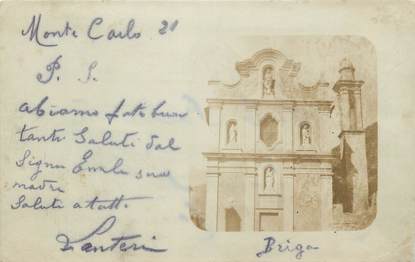 Monte Carlo 20
P. S.
abiamo fato buo
tanti Saluti dal
Signor Emile sua
madre
Saluti a tutti
Lanteri
Briga